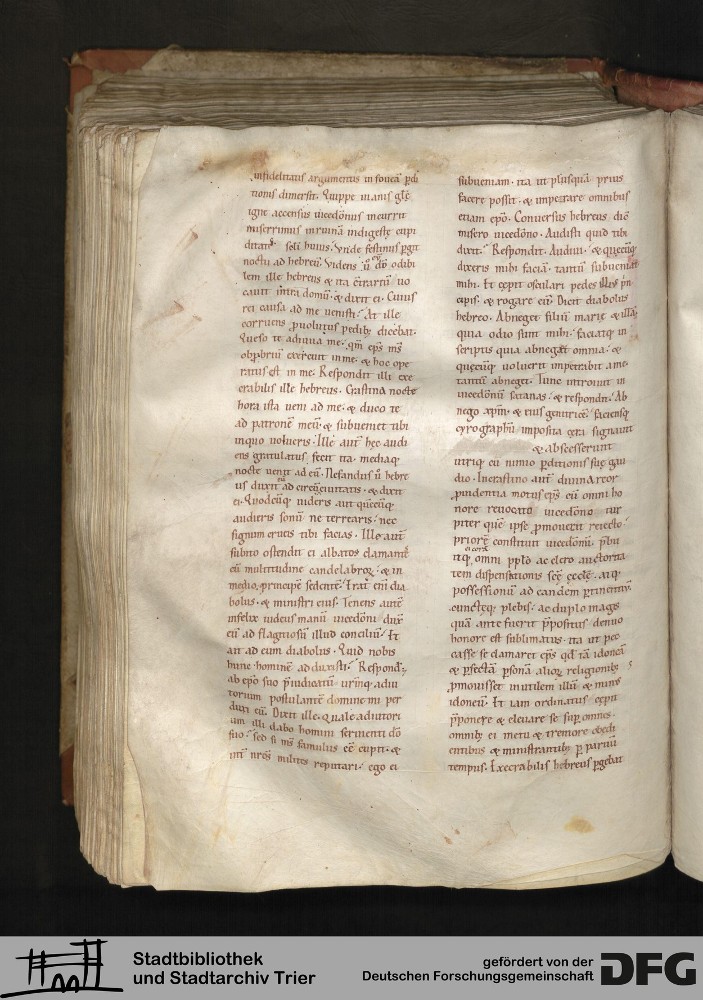 infidelitatis argumentis in foueā p̄di
tionis dimersit. Quippe inanis glę
igne accensus uicedōnus incurrit
miserrimus in ruinā indigestę cupi
ditatis. seli huius. Vnde festinus pgit
noctu ad hebreū. Videns ū dō odibi
lem ille hebreus & ita c̄tritū uo
cauit intra domū. & dixit ei. Cuius
rei causa ad me uenisti? At ille
corruens puolutus pedib; dicebat.
Queso te adiuua me. qm̄ ep̄s ms̄
obp̄briū exercuit in me. & hoc ope
ratus est in me. Respondit illi exe
crabilis ille hebreus. Crastina nocte
hora ista ueni ad me. & duco te
ad patronē meū. & subueniet tibi
in quo uolueris. Ille aut̄ hec audi
ens gratulatus fecit ita. mediaq;
nocte uenit ad eū. Nefandus ū hebre
us duxit eū ad circū ciuitatis. & dixit
ei. Quodcūq; uideris aut quęcūq;
audieris sonū ne terrearis. nec
signum crucis tibi facias. Ille aut̄
subito ostendit ei albatos clamantē
cū multitudine candelabroꝝ. & in
medio principē sedentē. Erat eni dia
bolus. & ministri eius. Tenens autē
infelix iudeus manū uicedōni dux̄
eū ad flagitiosū illud conciliū. Et
ait ad eum diabolus. Quid nobis
hunc hominē adduxisti? Respond;
ab ep̄o suo p̄iudicatū urinq; adiu
torium postulantē domine mi per
duxi eū. Dixit ille. Quale adiutori
um illi dabo homini seruienti dō
suo? sed si ms̄ famulus eē cupit. &
int̄ nr̄os milites reputari. ego ei
subueniam. ita ut plusquā prius
facere possit. & imperare omnibus
etiam ep̄o. Conuersus hebreus diē
misero uicedōno. Audisti quid tibi
dixit? Respondit. Audiui. & quęcūq;
dixeris mihi faciā. tantū subueniat
mihi. Et cępit osculari pedes illi⁹ p̄n
cipis. & rogare eū. Dicit diabolus
hebreo. Abneget filiū marię & illā
quia odio sunt mihi. faciatq; in
scriptis quia abnegat omnia. &
quęcūq; uoluerit impetrabit a me.
tantū abneget. Tunc introiuit in
uicedōnū satanas. & respondit. Ab
nego xp̄m. & eius genitricē. faciensq;
cyrographū imposita cęra signauit
& abscesserunt
utriq; cū nimio p̄ditionis suę gau
dio. In crastino aut̄ diuina reor
puidentia motus ep̄s cū omni ho
nore reuocato uicedōno tur
piter quē ipse pmouerat reiecto.
priorē constituit uicedōnū. p̄bu
itq; ei corā omni pp̄lo ac clero auctorita
tem dispensationis scę̄ ęcclę̄. atq;
possessionū ad eandem ptinentiū.
cunctęq; plebis. ac duplo magis
quā ante fuerit p̄positus denuo
honore est sublimatus. ita ut pec
casse se clamaret ep̄s qd̄ tā idoneā
& pfectā psonā alioꝝ religionib;
pmouisset inutilem illū & min⁹
idoneū. Et iam ordinatus cępit
p̄ponere & eleuare se sup omnes.
omnib; ei metu & tremore obedi
entibus & ministrantib; p paruū
tempus. Execrabilis hebreus pgebat
Stadtbibliothek
und Stadtarchiv Trier
gefördert von der
Deutschen Forschungsgemeinschaft
DFG